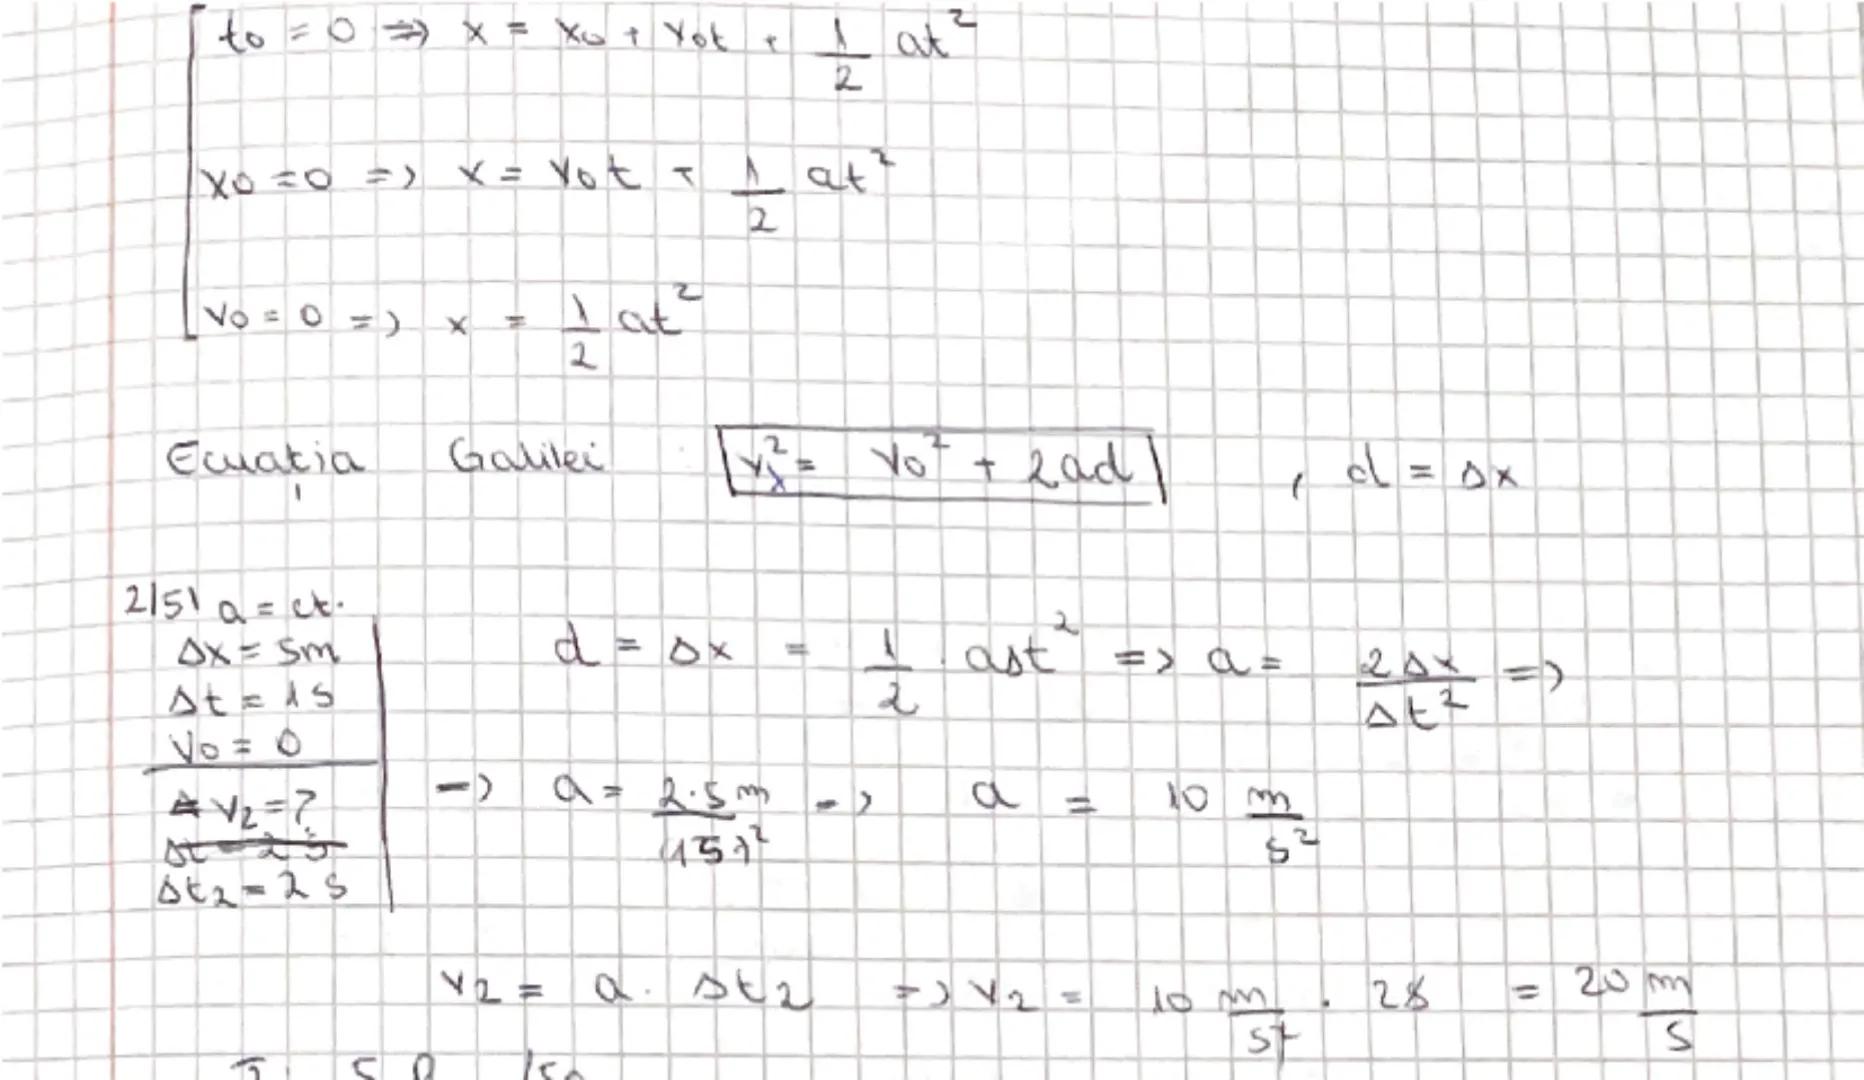 t0 = 0 => x = x0 + v0t + 1/2 at²
x0 = 0 => x = v0t + 1/2 at²
v0 = 0 => x = 1/2 at²
Ecuația Galilei v_x² = v0² + 2ad , d = Δx
2/51 a = ct.
Δx = 5m
Δt = 1s
v0 = 0
v2 = ?
Δt2 = 2s
d = Δx = 1/2 · aΔt² => a = 2Δx/Δt² =>
=> a = 2·5m/(1s)² => a = 10 m/s²
v2 = a · Δt2 => v2 = 10 m/s² · 2s = 20 m/s